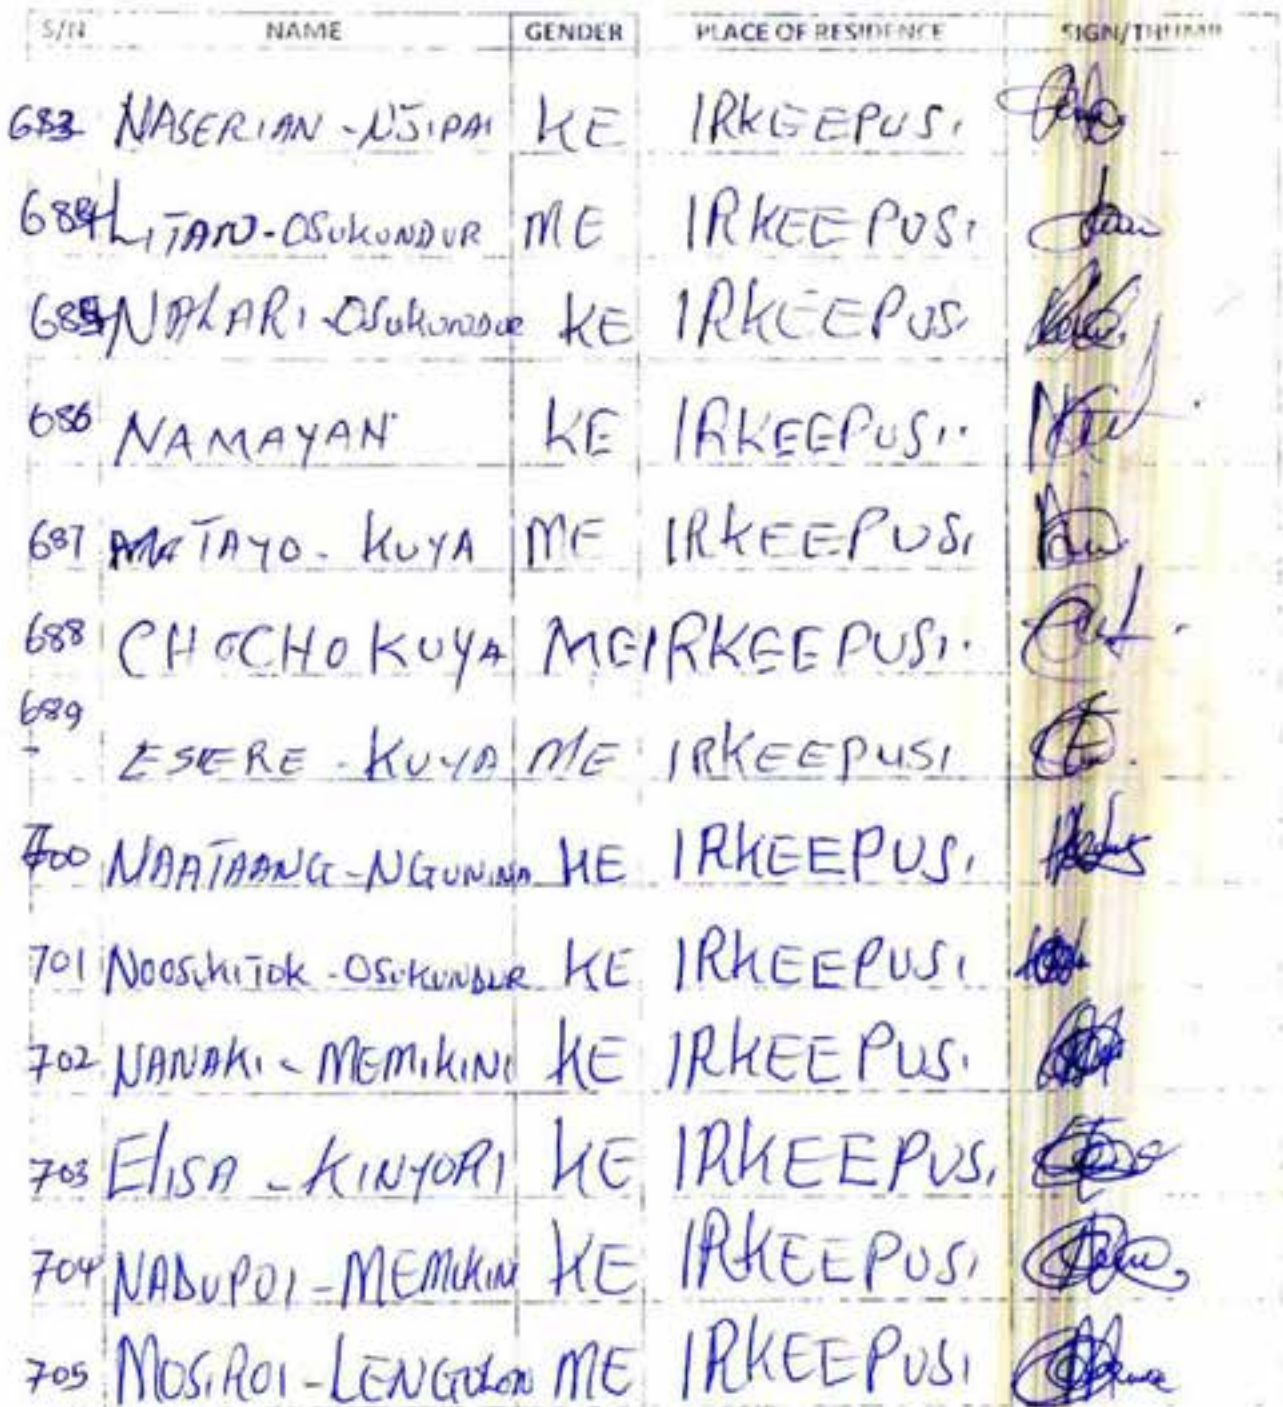 S/N NAME GENDER PLACE OF RESIDENCE SIGN/THUMB
683 NASERIAN - NJIPAI KE IRKEEPUSI
684 LITATO - OSUKUNDUR ME IRKEEPUSI
685 NALARI - OSUKUNDUR KE IRKEEPUSI
686 NAMAYAN KE IRKEEPUSI
687 MATAYO - KUYA ME IRKEEPUSI
688 CHOCHO KUYA ME IRKEEPUSI
689 ESIERE - KUYA ME IRKEEPUSI
700 NAATAANG - NGUNINA KE IRKEEPUSI
701 NOOSIKITOK - OSUKUNDUR KE IRKEEPUSI
702 NANAKI - MEMIKINI KE IRKEEPUSI
703 ELISA - KINYORI KE IRKEEPUSI
704 NADUPOI - MEMIKINI KE IRKEEPUSI
705 MOSIROI - LENGOLON ME IRKEEPUSI